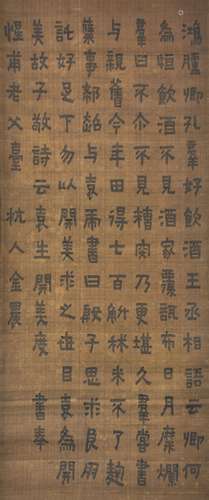 鴻臚卿孔羣好飲酒王丞相語云卿何
為恒飲酒不見酒家覆瓿布日月糜爛
羣曰不尒不見糟肉乃更堪久羣嘗書
与親舊今年田得七百斛秫米不了麴
糵事郗超与袁虎書曰殷子思求良朋
託好足下勿以開美求之世目袁為開
美故子敬詩云袁生開美度 書奉
惺甫老父臺 杭人金農